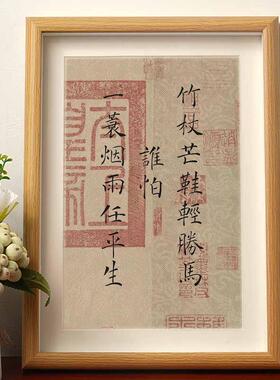 竹杖芒鞋輕勝馬
誰怕
一蓑烟雨任平生